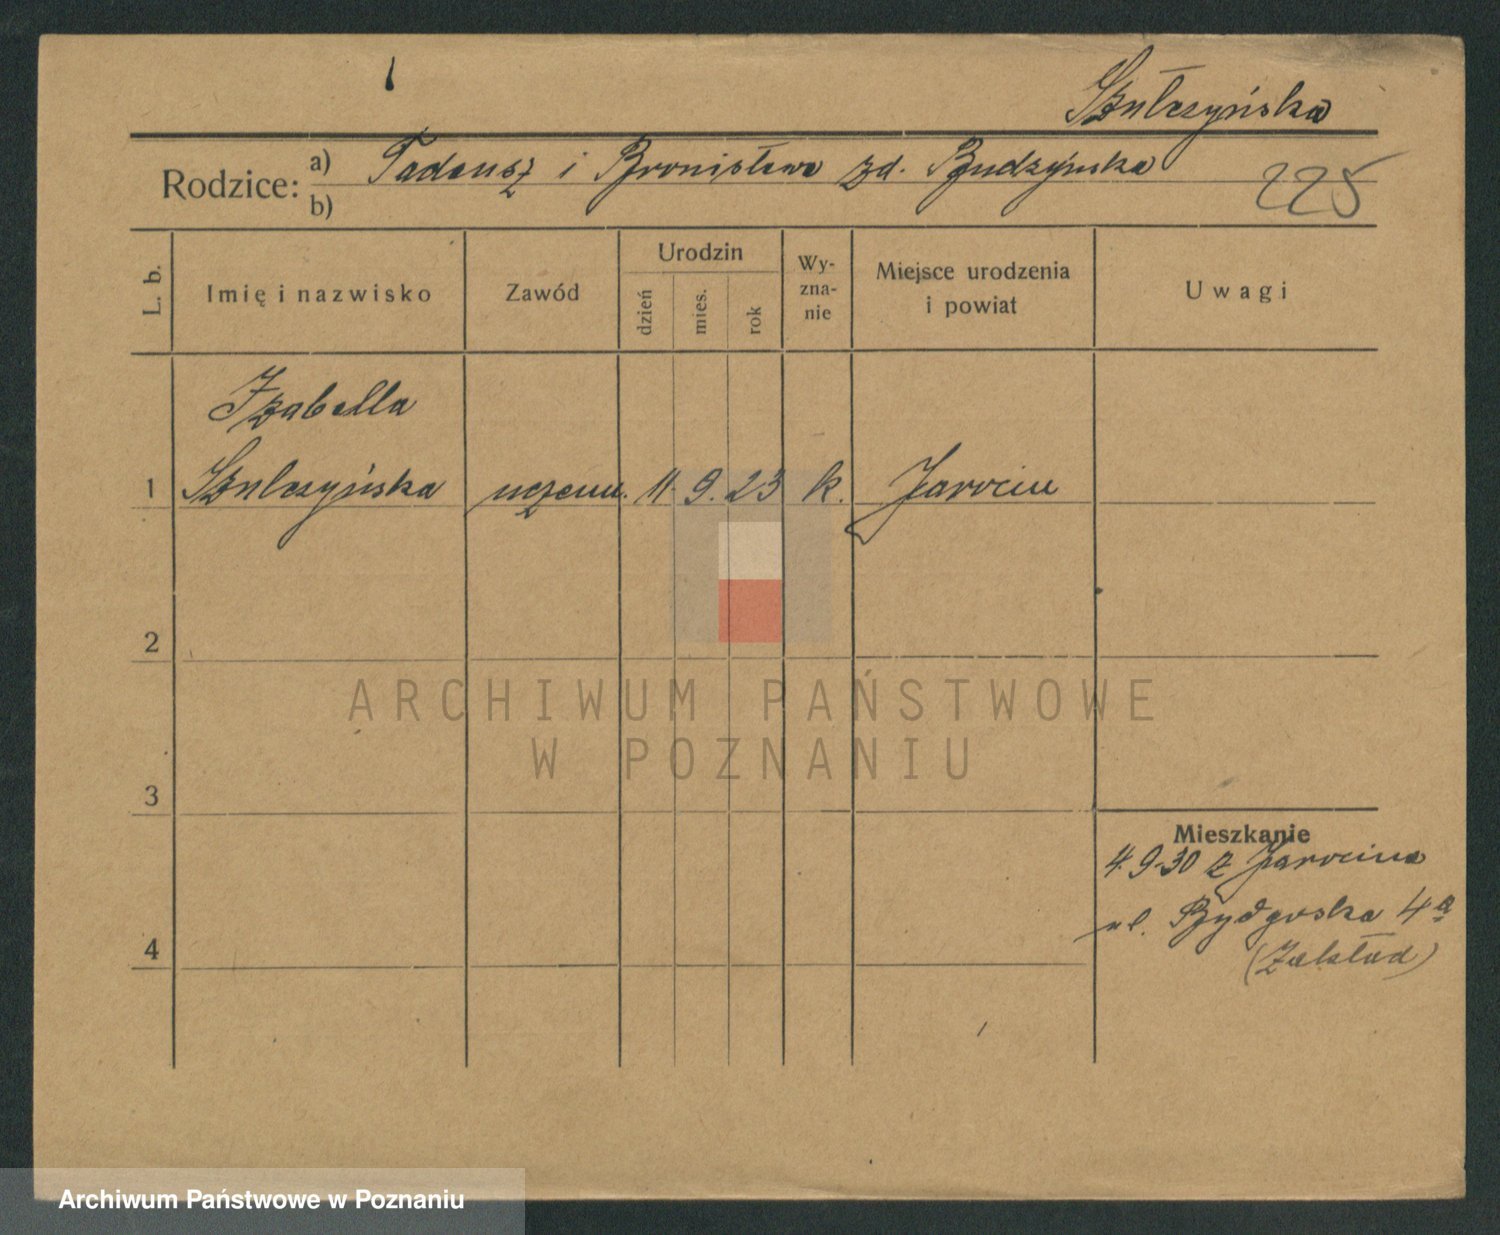 Szulczyńska
Rodzice: a) Tadeusz i Bronisława zd. Budzyńska
b)
225
L. b.
Imię i nazwisko
Zawód
Urodzin
dzień
mies.
rok
Wy-
zna-
nie
Miejsce urodzenia
i powiat
Uwagi
Izabella
1 Szulczyńska uczenn. 11. 9. 23 k. Jarocin
2
3
4
Mieszkanie
4.9.30 z Jarocina
ul. Bydgoska 4a
(Zakład)
ARCHIWUM PAŃSTWOWE
W POZNANIU
Archiwum Państwowe w Poznaniu